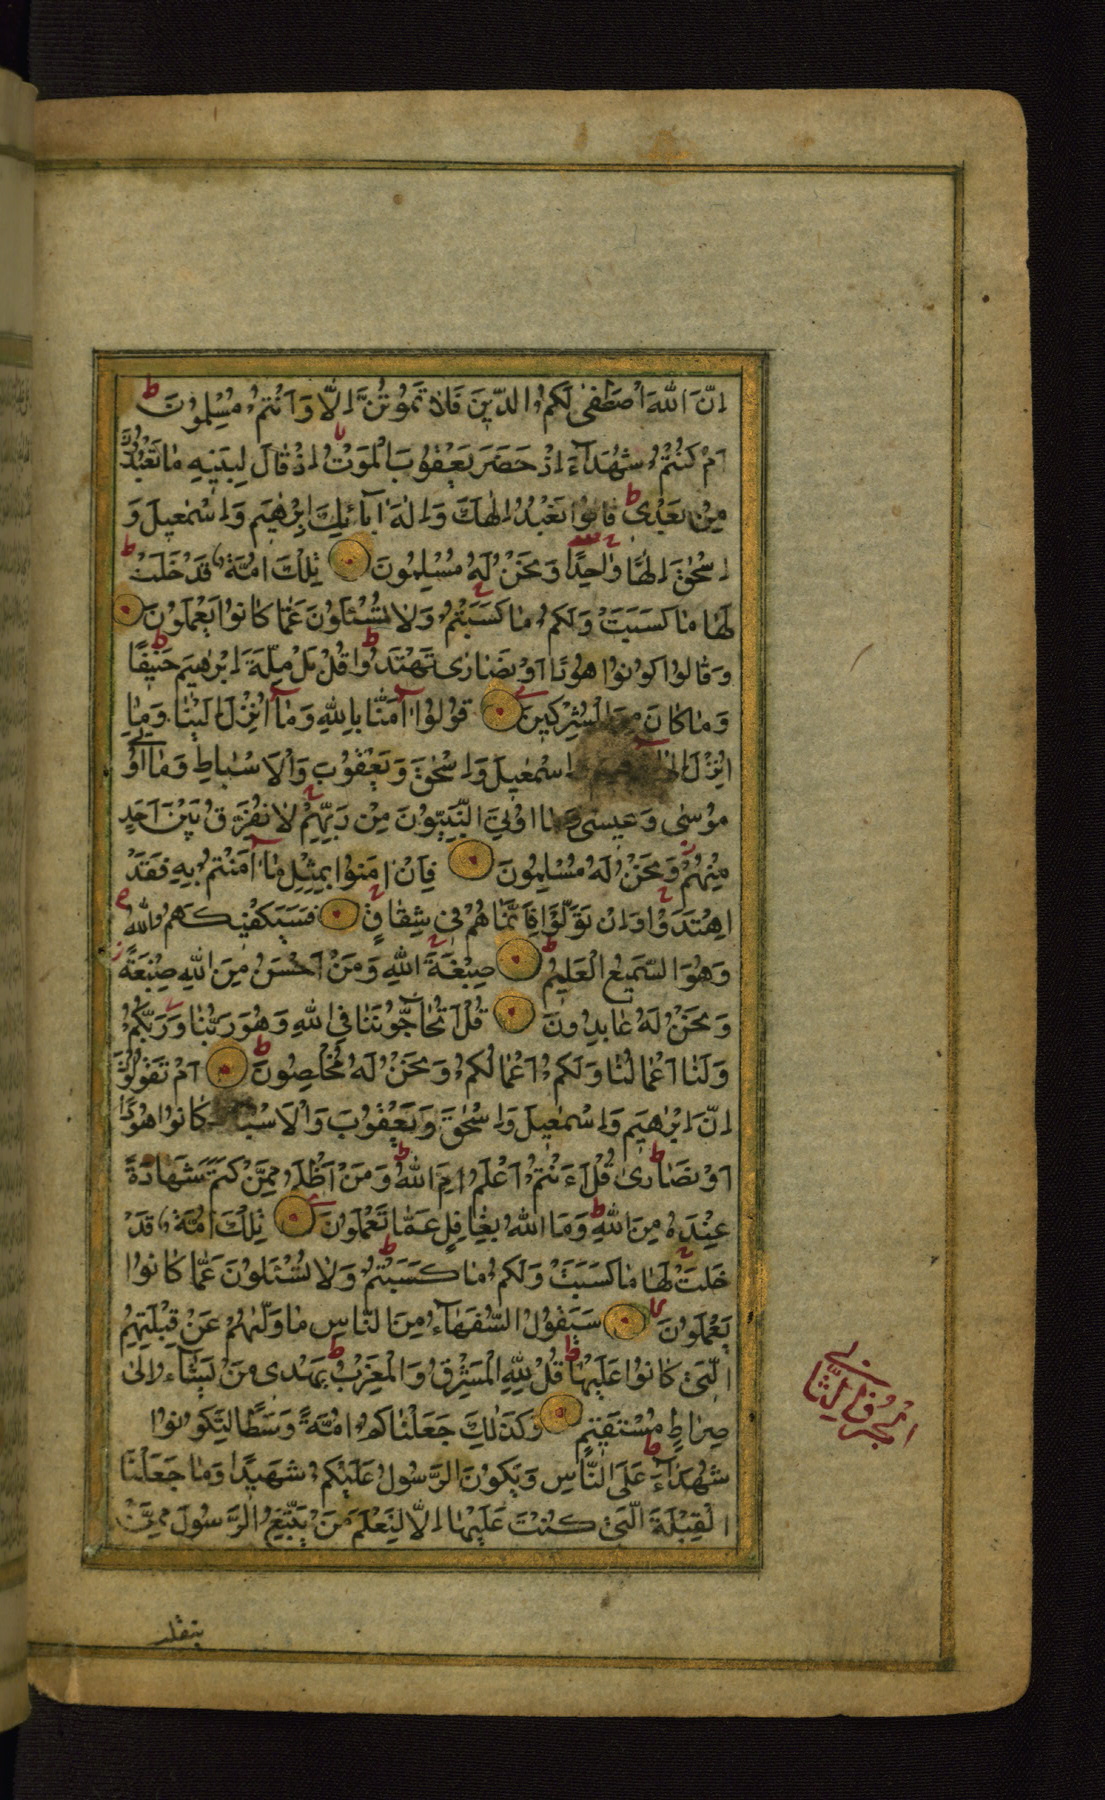 اِنَّ اللهَ اصْطَفٰى لَكُمُ الدّٖينَ فَلَا تَمُوتُنَّ اِلَّا وَاَنْتُمْ مُسْلِمُونَ
اَمْ كُنْتُمْ شُهَدَآءَ اِذْ حَضَرَ يَعْقُوبَ الْمَوْتُ اِذْ قَالَ لِبَنٖيهِ مَا تَعْبُدُونَ
مِنْ بَعْدٖى قَالُوا نَعْبُدُ اِلٰهَكَ وَاِلٰهَ اٰبَآئِكَ اِبْرٰهٖيمَ وَاِسْمٰعٖيلَ وَ
اِسْحٰقَ اِلٰهًا وَاحِدًا وَنَحْنُ لَهُ مُسْلِمُونَ تِلْكَ اُمَّةٌ قَدْ خَلَتْ
لَهَا مَا كَسَبَتْ وَلَكُمْ مَا كَسَبْتُمْ وَلَا تُسْئَلُونَ عَمَّا كَانُوا يَعْمَلُونَ
وَقَالُوا كُونُوا هُودًا اَوْ نَصَارٰى تَهْتَدُوا قُلْ بَلْ مِلَّةَ اِبْرٰهٖيمَ حَنٖيفًا
وَمَا كَانَ مِنَ الْمُشْرِكٖينَ قُولُوا اٰمَنَّا بِاللهِ وَمَا اُنْزِلَ اِلَيْنَا وَمَا
اُنْزِلَ اِلٰى اِسْمٰعٖيلَ وَاِسْحٰقَ وَيَعْقُوبَ وَالْاَسْبَاطِ وَمَا اُوتِىَ
مُوسٰى وَعٖيسٰى وَمَا اُوتِىَ النَّبِيُّونَ مِنْ رَبِّهِمْ لَا نُفَرِّقُ بَيْنَ اَحَدٍ
مِنْهُمْ وَنَحْنُ لَهُ مُسْلِمُونَ فَاِنْ اٰمَنُوا بِمِثْلِ مَا اٰمَنْتُمْ بِهِ فَقَدْ
اهْتَدَوْا وَاِنْ تَوَلَّوْا فَاِنَّمَا هُمْ فٖى شِقَاقٍ فَسَيَكْفٖيكَهُمُ اللهُ
وَهُوَ السَّمٖيعُ الْعَلٖيمُ صِبْغَةَ اللهِ وَمَنْ اَحْسَنُ مِنَ اللهِ صِبْغَةً
وَنَحْنُ لَهُ عَابِدُونَ قُلْ اَتُحَاجُّونَنَا فِى اللهِ وَهُوَ رَبُّنَا وَرَبُّكُمْ
وَلَنَا اَعْمَالُنَا وَلَكُمْ اَعْمَالُكُمْ وَنَحْنُ لَهُ مُخْلِصُونَ اَمْ تَقُولُونَ
اِنَّ اِبْرٰهٖيمَ وَاِسْمٰعٖيلَ وَاِسْحٰقَ وَيَعْقُوبَ وَالْاَسْبَاطَ كَانُوا هُودًا
اَوْ نَصَارٰى قُلْ ءَاَنْتُمْ اَعْلَمُ اَمِ اللهُ وَمَنْ اَظْلَمُ مِمَّنْ كَتَمَ شَهَادَةً
عِنْدَهُ مِنَ اللهِ وَمَا اللهُ بِغَافِلٍ عَمَّا تَعْمَلُونَ تِلْكَ اُمَّةٌ قَدْ
خَلَتْ لَهَا مَا كَسَبَتْ وَلَكُمْ مَا كَسَبْتُمْ وَلَا تُسْئَلُونَ عَمَّا كَانُوا
يَعْمَلُونَ سَيَقُولُ السُّفَهَآءُ مِنَ النَّاسِ مَا وَلّٰيهُمْ عَنْ قِبْلَتِهِمُ
الَّتٖى كَانُوا عَلَيْهَا قُلْ لِلّٰهِ الْمَشْرِقُ وَالْمَغْرِبُ يَهْدٖى مَنْ يَشَآءُ اِلٰى
صِرَاطٍ مُسْتَقٖيمٍ وَكَذٰلِكَ جَعَلْنَاكُمْ اُمَّةً وَسَطًا لِتَكُونُوا
شُهَدَآءَ عَلَى النَّاسِ وَيَكُونَ الرَّسُولُ عَلَيْكُمْ شَهٖيدًا وَمَا جَعَلْنَا
الْقِبْلَةَ الَّتٖى كُنْتَ عَلَيْهَا اِلَّا لِنَعْلَمَ مَنْ يَتَّبِعُ الرَّسُولَ مِمَّنْ
الجزؤ الثانى
ينقلب